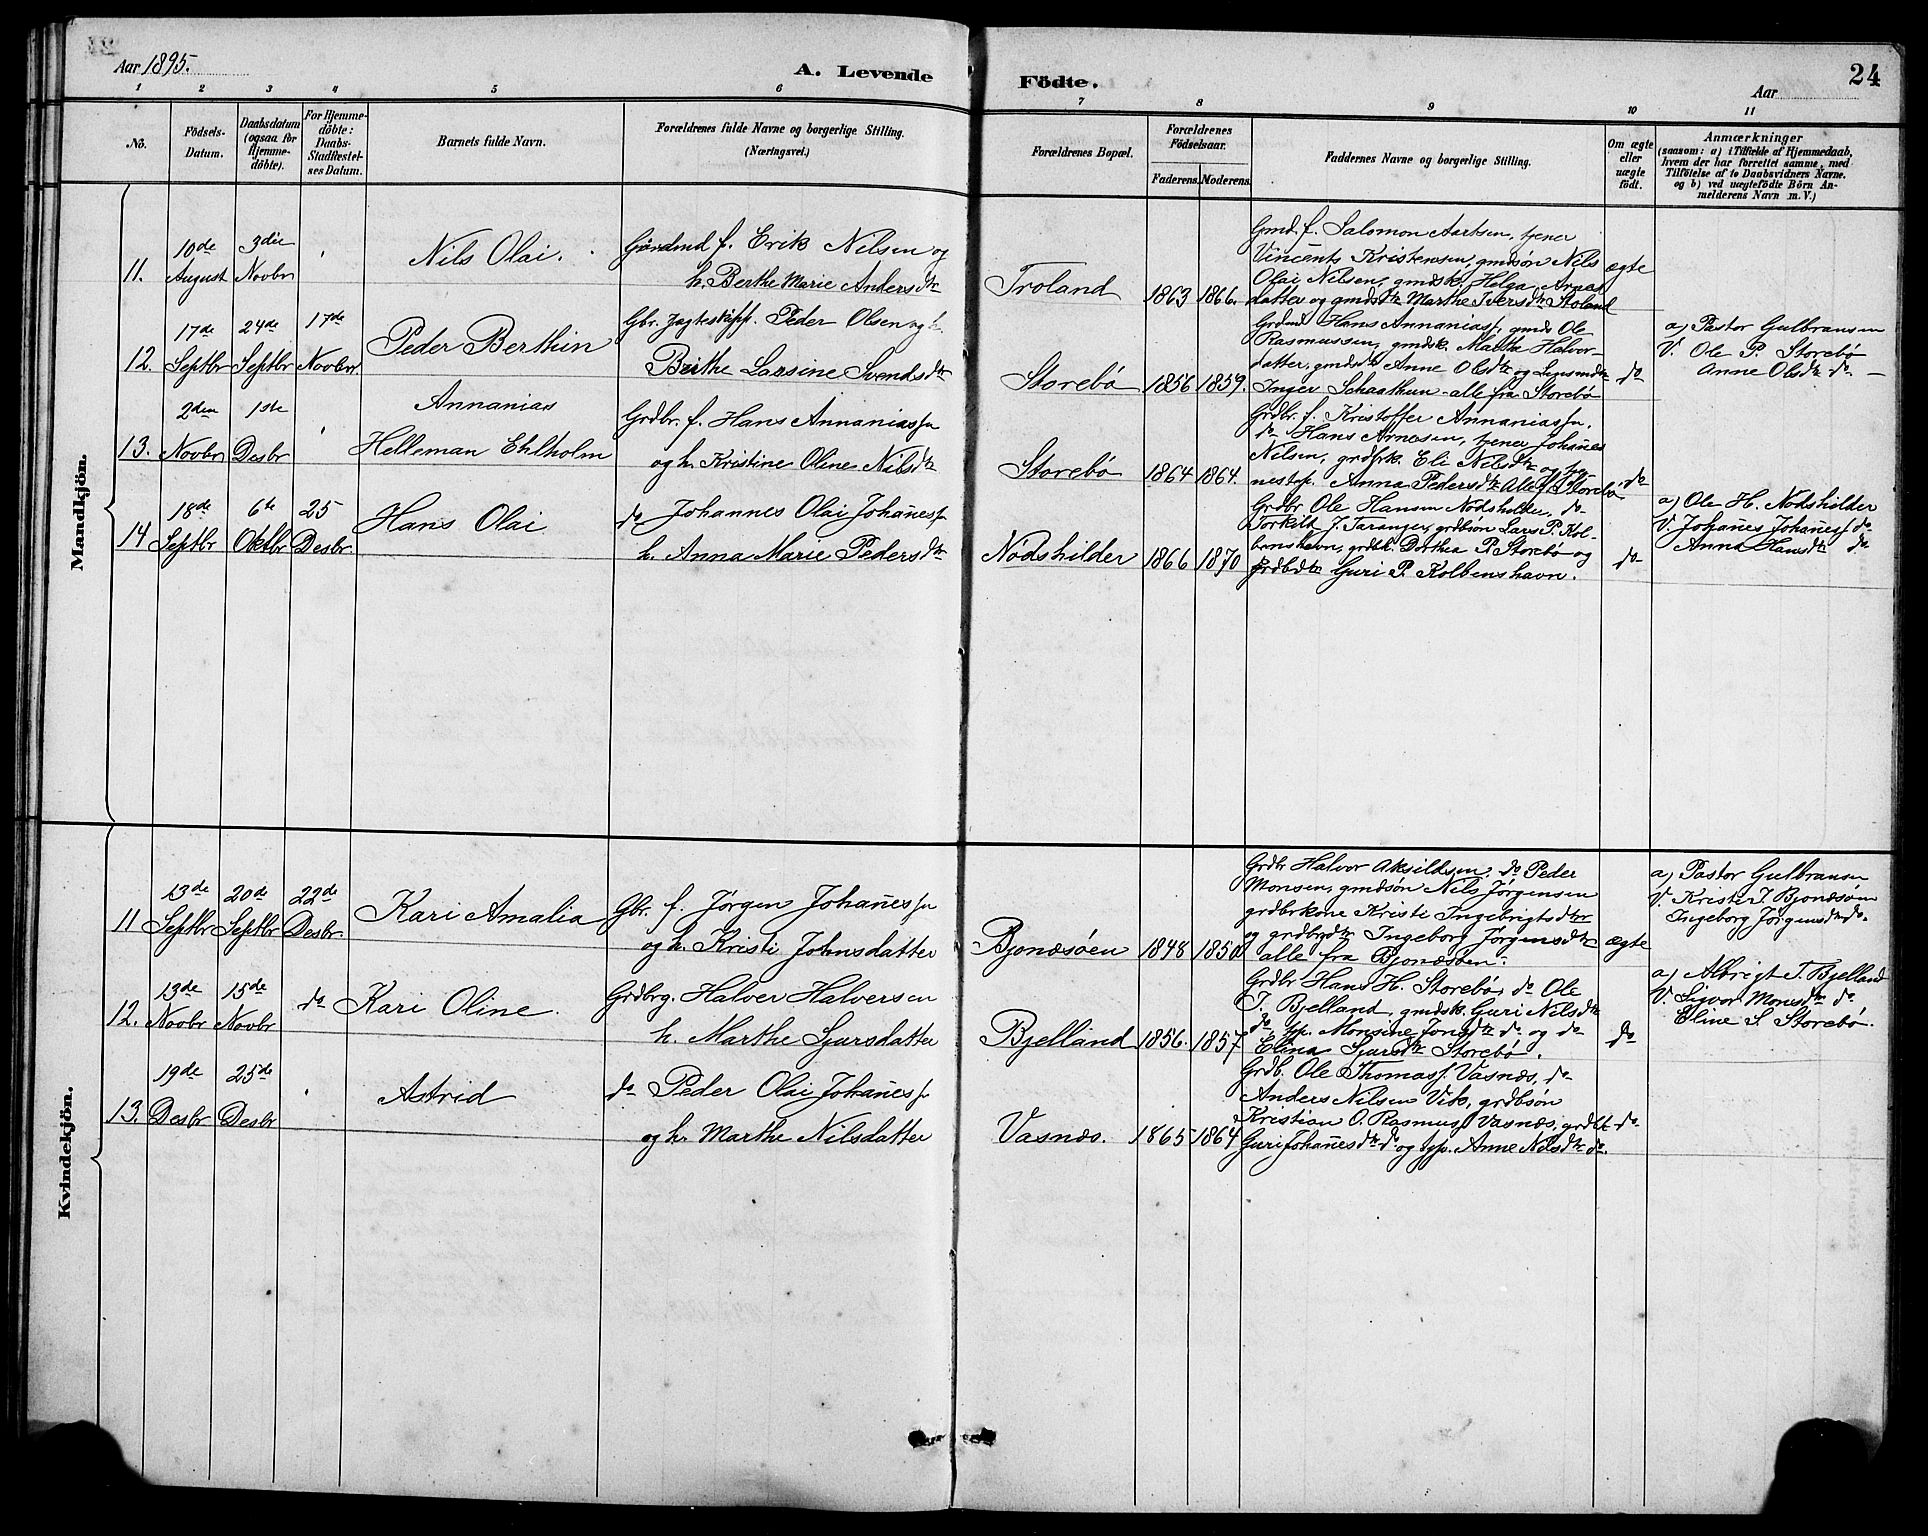 Aar 1895.
A. Levende Födte.
Aar
24
1 2 3 4 5 6 7 8 9 10 11
No.
Födsels-Datum.
Daabsdatum (ogsaa for Hjemme-döbte).
For Hjemme-döbte: Daabs-Stadfæstel-ses Datum.
Barnets fulde Navn.
Forældrenes fulde Navne og borgerlige Stilling. (Næringsvei.)
Forældrenes Bopæl.
Forældrenes Födselsaar.
Faderens. Moderens.
Faddernes Navne og borgerlige Stilling.
Om ægte eller uægte födt.
Anmærkninger
(saasom: a) i Tilfælde af Hjemmedaab,
hvem der har forrettet samme, med
Tilföielse af to Daabsvidners Navne.
og b) ved uægtefödte Börn An-
melderens Navn m. V.)
Mandkjön.
11. 10de August 3die Novbr Nils Olai.
Gårdmd f. Erik Nilsen og
h. Berthe Marie Andersdtr
Troland 1863 1866.
Gmd. f. Salomon Aartsen, tjener
Vincents Kristensen, gmdsön Nils
Olai Nilsen, gmdsk. Helga Arnes
datter og gmdsdtr Marthe Iversdtr Stoland
ægte
12. 17de Septbr 24de Septbr 17de Novbr Peder Berthin
Gbr. Jagteskipp. Peder Olsen og h.
Birthe Larsine Svendsdtr
Storebø 1856 1859.
Grdmd Hans Annaniass, gmds Ole
Rasmussen, gmdsk. Martha Halvor-
datter, gmdsdtr Anne Olsdtr og
Inger Schaathun - alle fra Storebø
do
a) Pastor Gulbransen
V. Ole P. Storebø
Anne Olsdtr do. -
13. 2den Novbr 1ste Desbr Annanias
Helleman Ehlholm
Grdbr. f. Hans Annaniassn
og h. Kristine Oline Nilsdtr
Storebø 1864 1864.
Grdbr. f. Kristoffer Annaniassn.
do Hans Arnesen, tjener Johanes
Nilsen, grdbrk. Eli Nilsdtr og tje-
nestep. Anna Pedersdtr Alle f. Storebø
do
14 18de Septbr 6te Oktbr 25 Desbr. Hans Olai
do Johannes Olai Johaness
h. Anna Marie Pedersdtr
Nødshilder 1866 1870
Grdbr Ole Hansen Nødshilder, do
Torkild J. Taranger, grdbsön Lars P. Kol-
benshavn, grdbk. Dorthea P. Storebø og
grdbdtr Guri P. Kolbenshavn.
do
a) Ole H. Nødshilder
V. Johanes Johaness do
Anna Hansdtr do
Kvindekjön.
11 13de Septbr 20de Septbr 22de Desbr. Kari Amalia
Gbr. f. Jørgen Johanessn
og h. Kristi Johnsdatter
Bjonæsøen 1848 1850
Grdbr Halvor Aksildsen, do Peder
Monsen, gmdsön Nils Jørgensen
grdbrkone Kristi Ingebrigtsdtr
og grdbrdtr Ingeborg Jørgensdtr
alle fra Bjonæsøen.
ægte
a) Pastor Gulbransen
V. Kristi J. Bjonæsøen
Ingeborg Jørgensdtr do.
12. 13de Novbr 15de Novbr do Kari Oline.
Grdbrg. Halver Halversen
h. Marthe Sjursdatter
Bjelland 1856. 1857
Grdbr Hans H. Storebø, do Ole
T. Bjelland, gmdsk. Guri Nilsdtr
do, typ. Monsine Jonsdtr do og do
Elina Sjursdtr Storebø.
do
a) Albrigt T. Bjelland
V. Sigvor Monsdtr do
Eline S. Storebø.
13. 19de Desbr 25de Desbr Astrid
do Peder Olai Johaness
og h. Marthe Nilsdatter
Vasnæs. 1865 1864
Grdb. Ole Thomass. Vasnæs, do
Anders Nilsen Vik, grdbsön
Kristian O. Rasmuss Vasnæs, grdbk
Guri Johanesdtr do og typ. Anne Nilsdtr do.
do